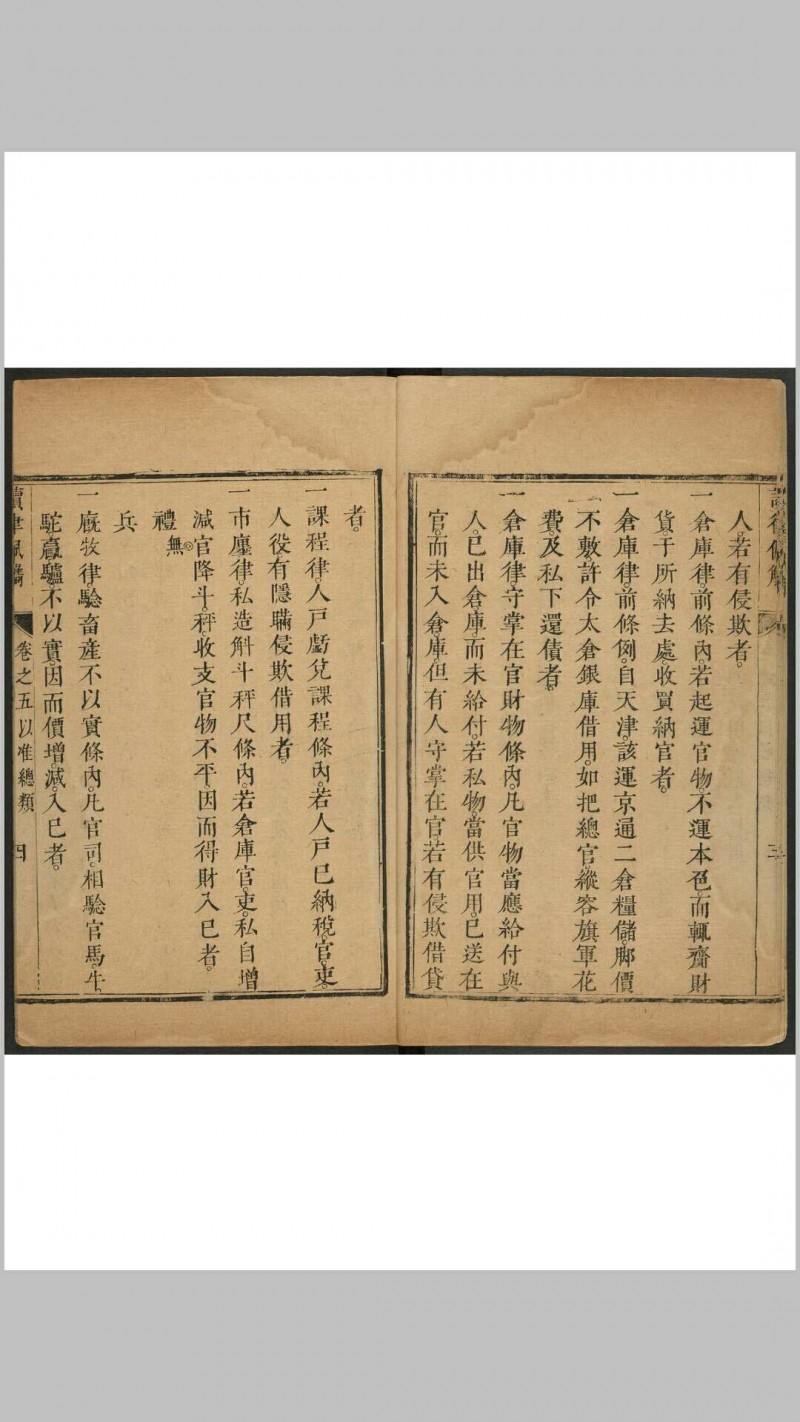 人若有侵欺者。
一倉庫律前條內若起運官物不運本色而輒齎財
貨于所納去處收買納官者。
一倉庫律前條例自天津該運京通二倉糧儲脚價
不敷許令太倉銀庫借用如把總官縱容旗軍花
費及私下還債者。
一倉庫律守掌在官財物條內凡官物當應給付與
人已出倉庫而未給付若私物當供官用已送在
官而未入倉庫但有人守掌在官若有侵欺借貸
者。
一課程律人戶虧兌課程條內若人戶已納稅官吏
人役有隱瞞侵欺借用者。
一市廛律私造斛斗秤尺條內若倉庫官吏私自增
減官降斗秤收支官物不平因而得財入已者。
禮 無。
兵
一廐牧律驗畜產不以實條內凡官司相驗官馬牛
駝驘驢不以實因而價增減入已者。
卷之五以准總類 四